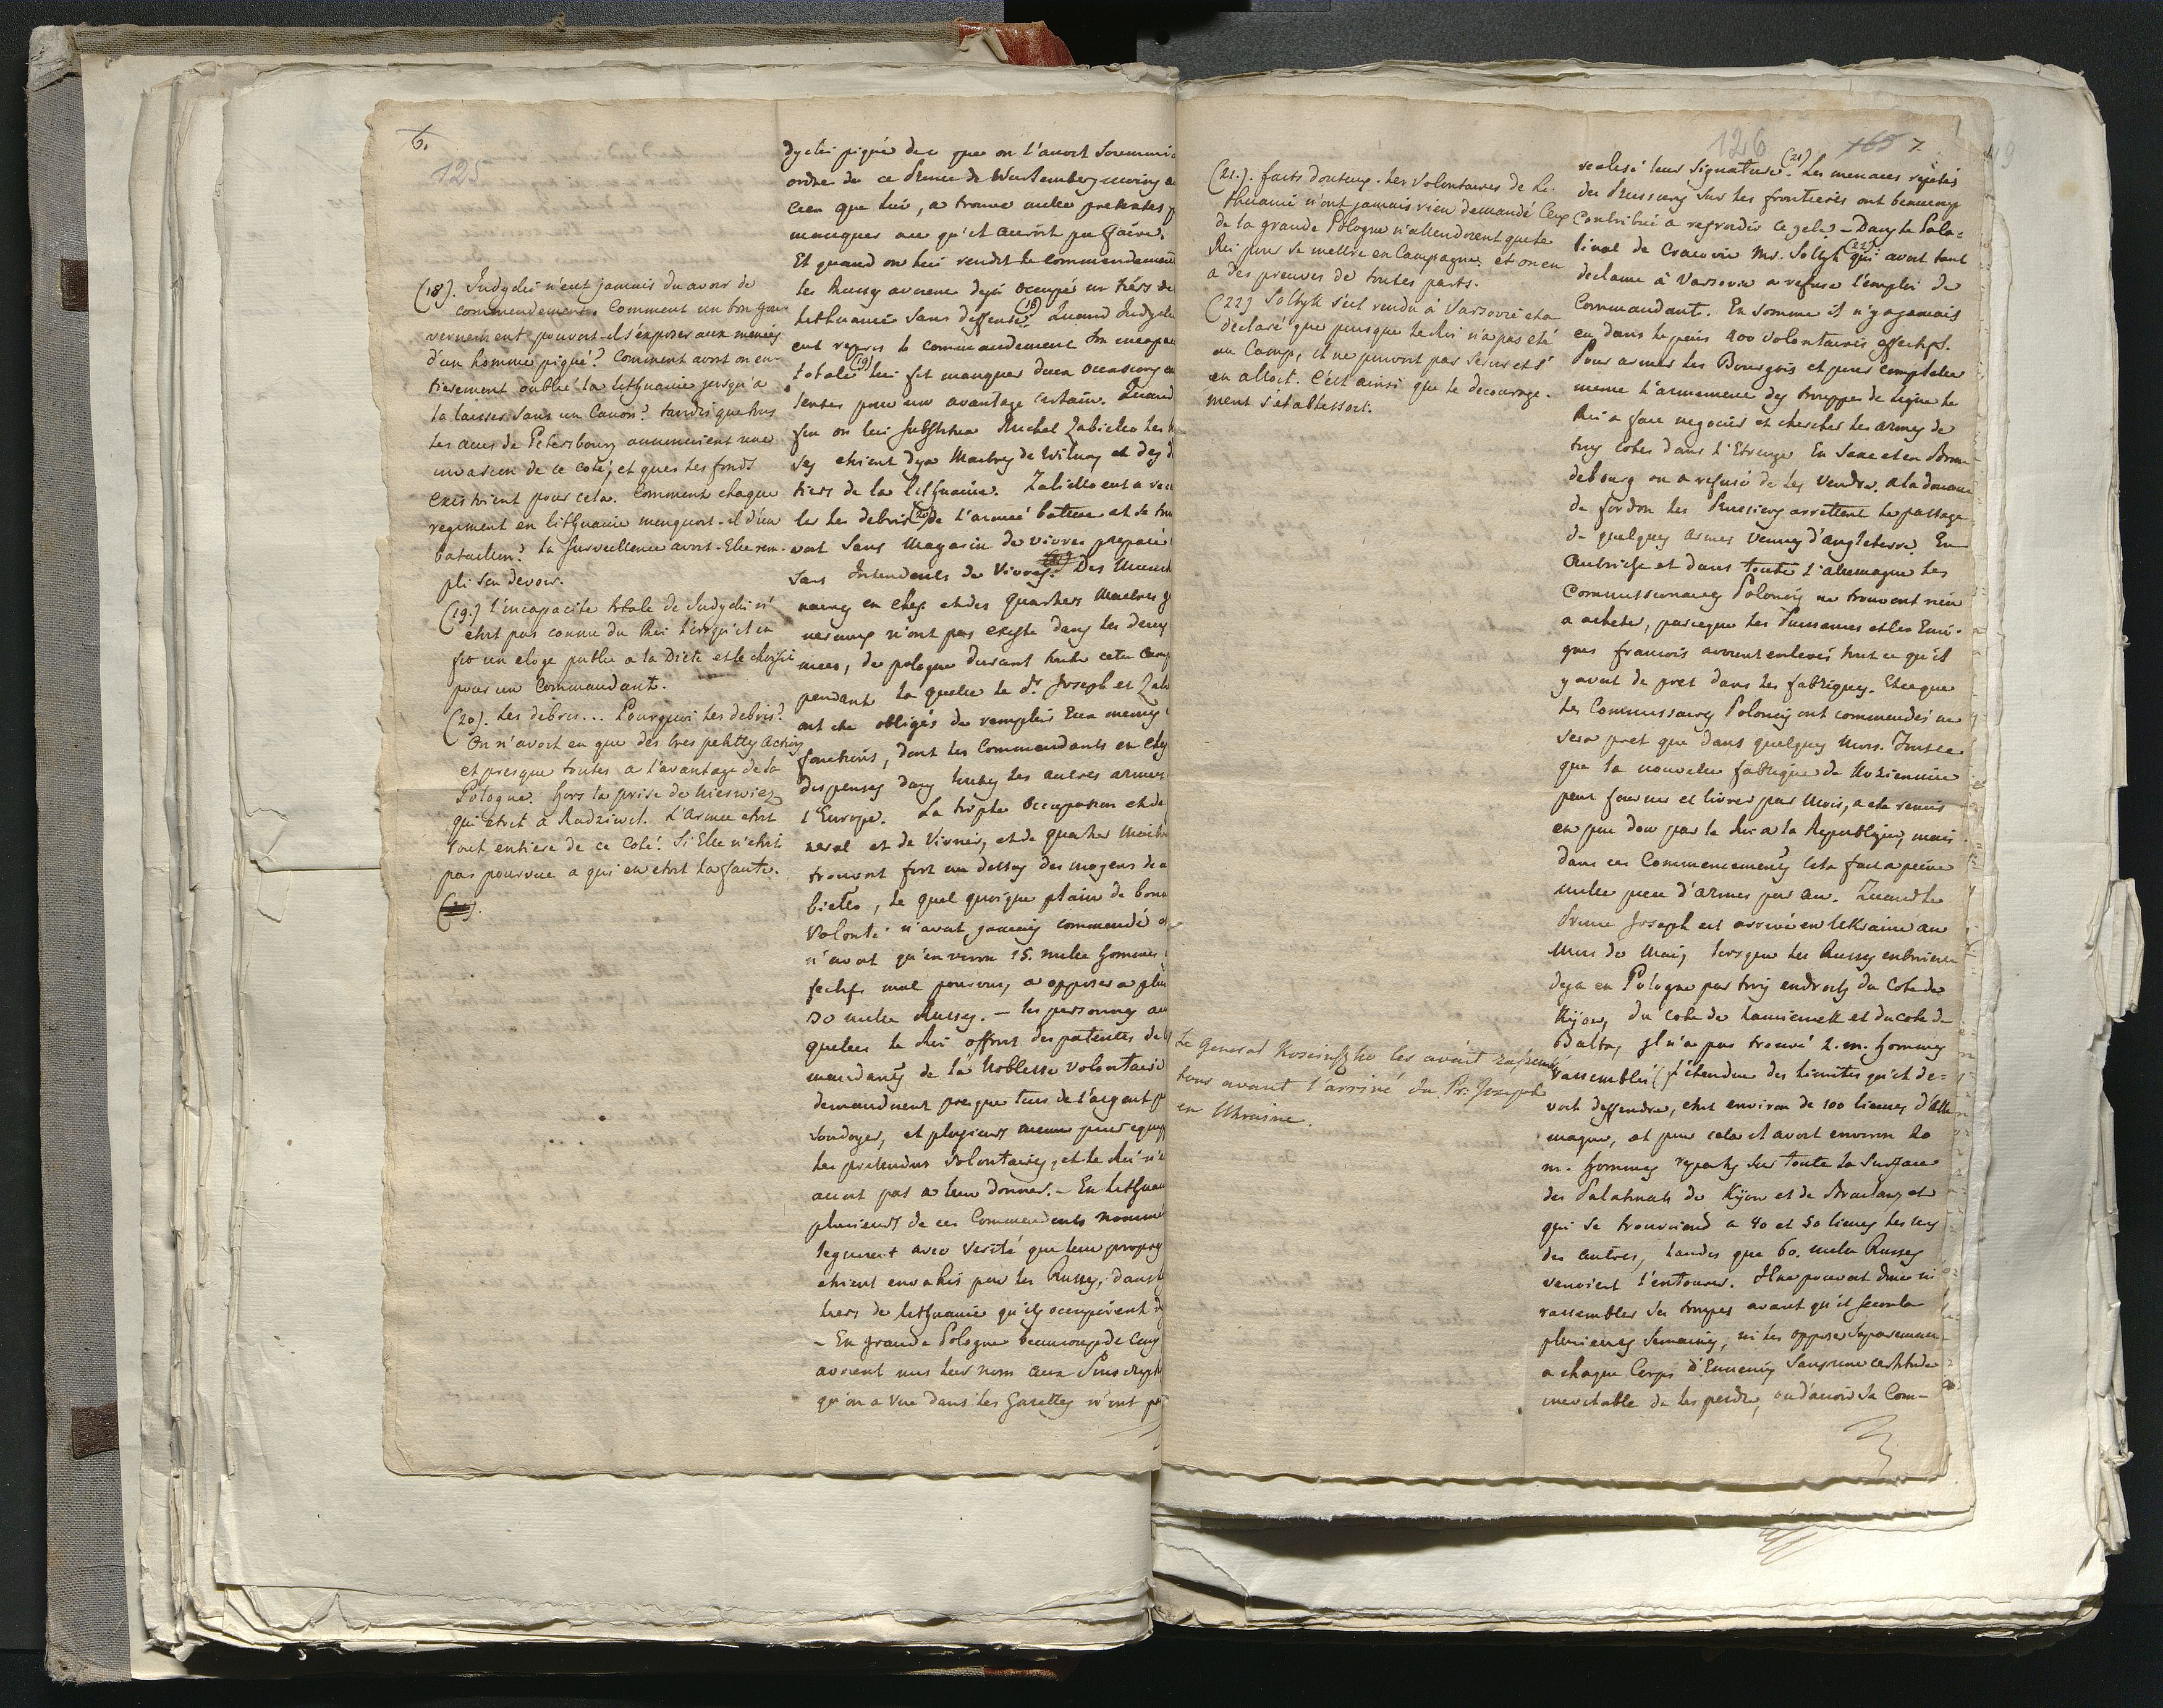 6.
125
(18). Judycki n'eut jamais du avoir de
commendement. Comment un bon gou-
vernement pouvoit-il s'exposer aux menées
d'un homme piqué? Comment avoit on en-
tierement oublié la lithuanie jusqu'a
la laisser sans un Canon? tandis que tous
les avis de Petersbourg annonçoient une
invasion de ce coté; et que les fonds
existoient pour cela. Comment chaque
regiment en lithuanie manquoit-il d'un
bataillon? la surveillence avoit-Elle rem-
pli son devoir.
(19.) l'incapacite totale de Judycki n'
etoit pas connue du Roi lorsqu'il en
fit un eloge public a la Diete et le choisit
pour un Commandant.
(20). Les debris... Pourquoi les debris?
On n'avoit eu que des tres petittes actions
et presque toutes a l'avantage de la
Pologne. hors la prise de Nieswiez
qui etoit a Radziwil. L'armée etoit
tout entiere de ce Coté. Si Elle n'etoit
pas pourvue a qui en etoit la faute.
dycki piqué de ce que on l'avoit soumis
ordre de ce Prince de Wurtemberg moins
cien que lui, a trouvé mille pretextes
manquer ce qu'il auroit pu faire.
Et quand on lui rendit le commendement
les Russes avoient deja occupé un tiers de
lithuanie sans deffense. (18) Quand Judycki
eut repris le commandement son incapa
totale (19) lui fit manquer deux occasions
lentes pour un avantage certain. Quand
fin on lui substitua Michel Zabiello les
ses etoient deja Maitres de Wilna et des
tiers de la lithuanie. Zabiello eut a
ler les debris (20) de l'armée battue et se trou
voit sans Magasin de vivres preparé
sans Intendents de Vivres. Des
naires en chef et des quartiers Maitres
neraux n'ont pas existé dans les deux
mées, de pologne durant toute cette camp
pendant la quelle le Pr. Joseph et Zab
ont ete obligés de remplir Eux memes
fonctions, dont les Commendants en Chef
dispensés dans toutes les autres armées
l'Europe. La triple occupation et de
neral et de Vivrier, et de quartier Maitre
trouvoit fort au dessus des moyens de
biello, le quel quoique plein de bonne
Volonté n'avoit jamais commendé
n'avoit qu'environ 15. mille hommes
fectifs mal pourvus, a opposer a plus
30 mille Russes. — les personnes aux
quelles le Roi offroit des patentes de
mendants de la Noblesse Volontaire
demandoient presque tous de l'argent
soudoyer, et plusieurs meme pour equip
les pretendus Volontaires, et le Roi n'en
avoit pas a leur donner. — En lithuan
plusieurs de ces Commendents nommés
leguerent avec Verité que leur propres
etoient envahis par les Russes, dans
tiers de lithuanie qu'ils occupoient
— En grande Pologne beaucoup de Ceux
avoient mis leur nom aux Souscript
qu'on a vue dans les gazettes n'ont
126
165
7
(21.). faits douteux. Les Volontaires de Li-
thuanie n'ont jamais rien demandé Ceux
de la grande Pologne n'attendoient que le
Roi pour se mettre en Campagne, et on en
a des preuves de toutes parts.
(22) Soltyk s'est rendu à Varsovie et a
declaré que puisque le Roi n'a pas eté
au Camp, il ne pouvoit pas servir et s'
en alloit. C'est ainsi que le decourage-
ment s'etablissoit.
Le General Kosciuszko les avait rassemblé
tous avant l'arrivé du Pr: Joseph
en Ukraine.
realisé leur Signature. (21) Les menaces repetés
des Prussiens sur les frontieres ont beaucoup
Contribué a refroidir ce zele. — Dans le Pala-
tinat de Cracovie Mr. Soltyk (22) qui avoit tant
declamé à Varsovie a refusé l'emploi de
Commandant. En somme il n'y a jamais
eu dans le païs 400 Volontaires effectifs.
Pour armer les Bourgois et pour completer
meme l'armement des trouppes de ligne le
Roi a fait negocier et chercher les armes de
tous cotés dans l'Etrange. En Saxe et en Bran-
debourg on a refusé de les Vendre. a la douane
de fordon les Prussiens arrettent le passage
de quelques armes venues d'angleterre. En
Autriche et dans toute l'allemagne les
Commissionaires Polonois ne trouvent rien
a acheter, parceque les Puissances et les Emi-
grés francois avoient enlevés tout ce qu'il
y avoit de pret dans les fabriques. Et ce que
les Commissaires Polonois ont commendés ne
sera pret que dans quelques Mois. Tout ce
que la nouvelle fabrique de Kozienice
peut fournir et livrer par Mois, a ete remis
en pur don par le Roi a la Republique, mais
dans ces Commencements cela fait a peine
mille piece d'armes par an. Quand le
Prince Joseph est arrivé en Ukraine au
Mois de Mai, lorsque les Russes entroient
deja en Pologne par trois endroits du Coté de
Kijow, du coté de kamieniek et du coté de
Balta, Il n'a pas trouvé 2. m. hommes
rassemblés( l'étendue des limites qu'il de-
voit deffendre, etoit environ de 100 lieues d'alle
magne, et pour cela il avoit environ 20
m. hommes repartis sur toute la surface
des Palatinats de Kijow et de Braclaw, et
qui se trouvoient a 40 et 50 lieues les uns
des autres, tandis que 60. mille Russes
venoient l'entourer. Il ne pouvoit donc ni
rassembler ses troupes avant qu'il s'ecoula
plusieures Semaines, ni les opposer separement
a chaque Corps d'Ennemis sans une certitude
inevitable de les perdre, ou d'avoir sa Com-